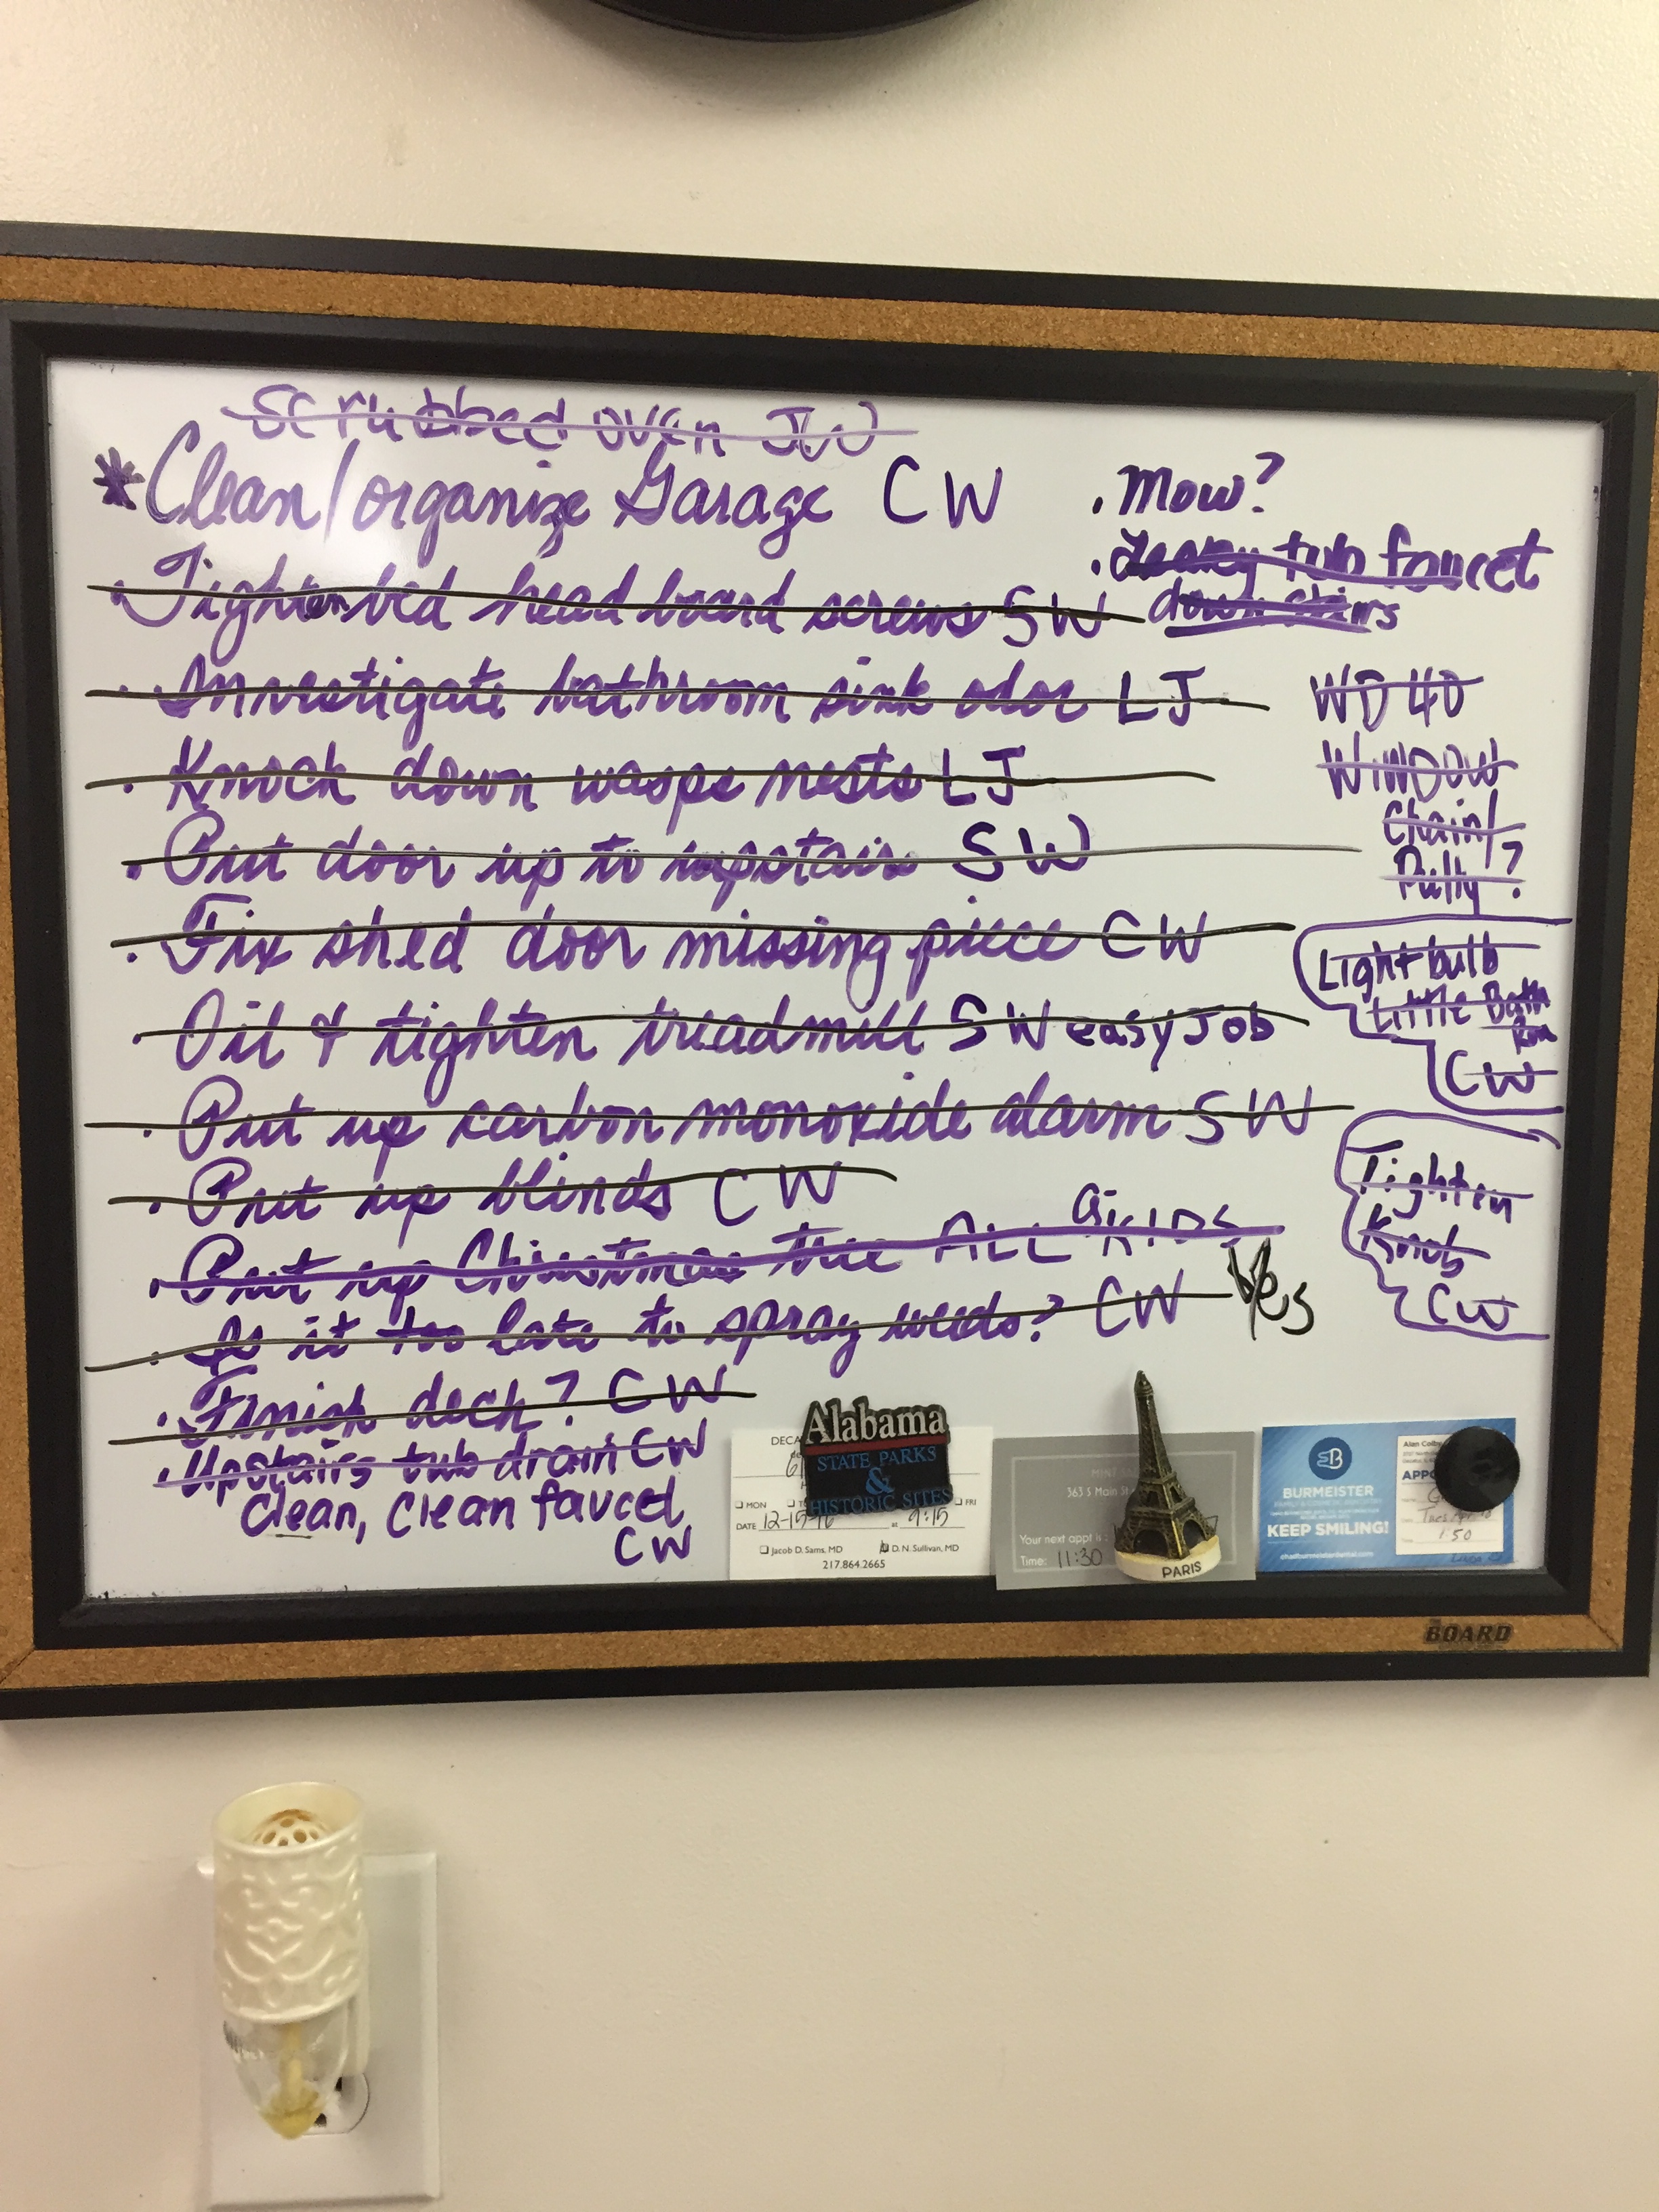 Scrubbed oven JW
*Clean/organize Garage CW
. Tighten bed head board screws SW
. Investigate bathroom sink odor LJ
. Knock down wasps nests LJ
. Put door up to upstairs SW
. Fix shed door missing piece CW
. Oil & tighten treadmill SW easy Job
. Put up carbon monoxide alarm SW
. Put up blinds CW
. Put up Christmas tree ALL GKIDS
. Is it too late to spray weeds? CW Yes
. Finish deck? CW
. Upstairs tub drain CW
Clean, Clean faucet
CW
. Mow?
. Leaky tub faucet
downstairs
WD 40
WINDOW
Chain/
Pully?
Lightbulb
Little Bath
Rm
CW
Tighten
Knob
CW
Alabama
STATE PARKS
&
HISTORIC SITES
DECA
MON
FRI
DATE 12-15-16 at 9:15
Jacob D. Sams, MD D. N. Sullivan, MD
217.864.2665
MINT
363 S Main St
Your next appt is:
Time: 11:30
PARIS
BURMEISTER
KEEP SMILING!
chadburmeisterdental.com
Alan Colby
APPO
1:50
THE BOARD